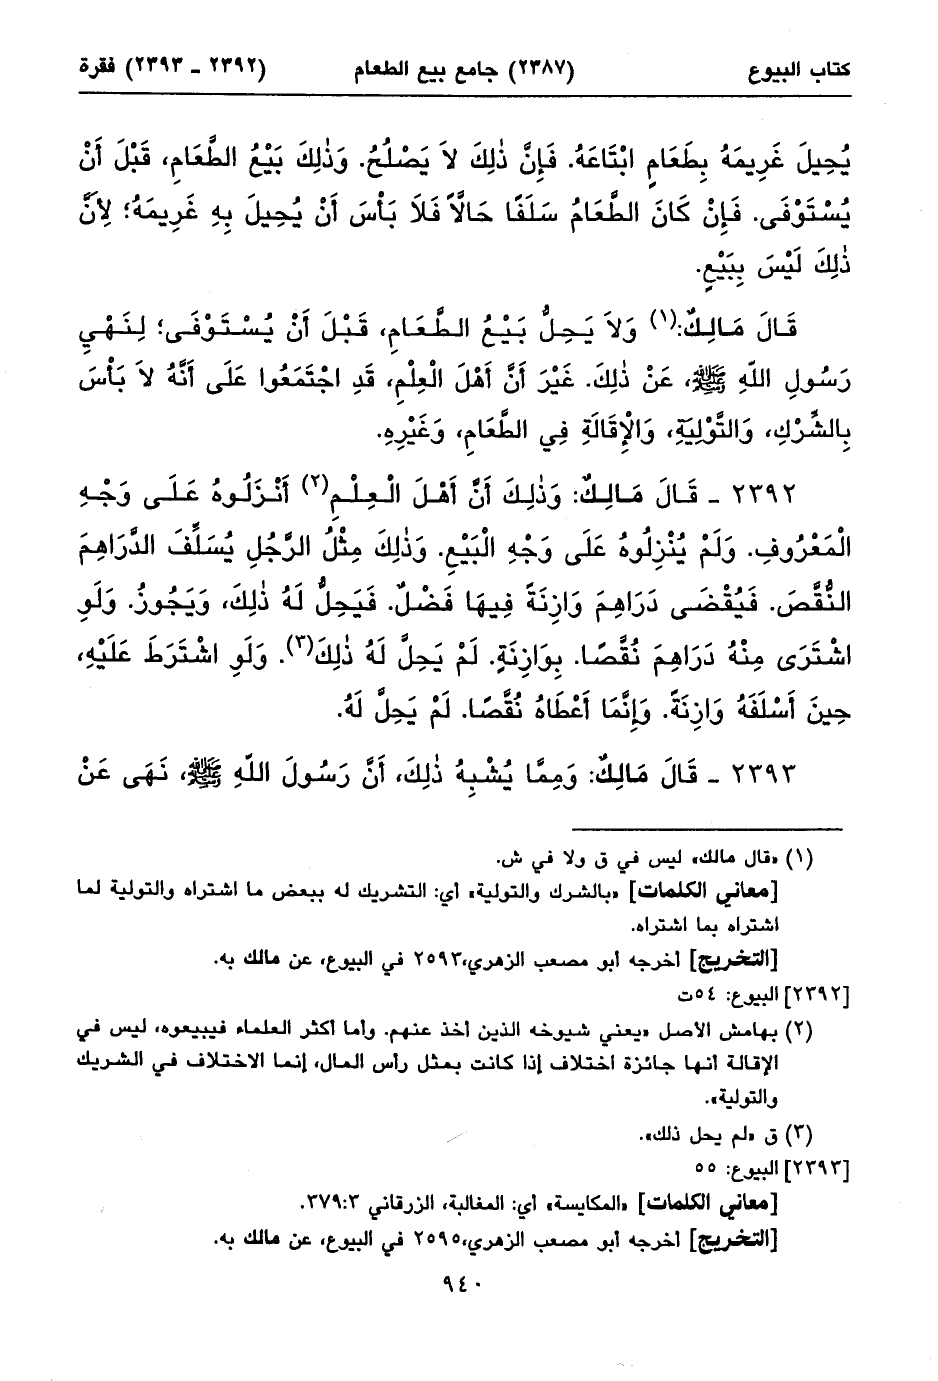 كتاب البيوع (٢٣٨٧) جامع بيع الطعام (٢٣٩٢ ـ ٢٣٩٣) فقرة
يُحِيلَ غَرِيمَهُ بِطَعَامٍ ابْتَاعَهُ. فَإِنَّ ذٰلِكَ لاَ يَصْلُحُ. وَذٰلِكَ بَيْعُ الطَّعَامِ، قَبْلَ أَنْ
يُسْتَوْفَى. فَإِنْ كَانَ الطَّعَامُ سَلَفًا حَالاًّ فَلاَ بَأْسَ أَنْ يُحِيلَ بِهِ غَرِيمَهُ؛ لِأَنَّ
ذٰلِكَ لَيْسَ بِبَيْعٍ.
قَالَ مَالِكٌ:(١) وَلاَ يَحِلُّ بَيْعُ الطَّعَامِ، قَبْلَ أَنْ يُسْتَوْفَى؛ لِنَهْيِ
رَسُولِ اللّهِ ﷺ، عَنْ ذٰلِكَ. غَيْرَ أَنَّ أَهْلَ الْعِلْمِ، قَدِ اجْتَمَعُوا عَلَى أَنَّهُ لاَ بَأْسَ
بِالشِّرْكِ، وَالتَّوْلِيَةِ، وَالْإِقَالَةِ فِي الطَّعَامِ، وَغَيْرِهِ.
٢٣٩٢ ـ قَالَ مَالِكٌ: وَذٰلِكَ أَنَّ أَهْلَ الْعِلْمِ(٢) أَنْزَلُوهُ عَلَى وَجْهِ
الْمَعْرُوفِ. وَلَمْ يُنْزِلُوهُ عَلَى وَجْهِ الْبَيْعِ. وَذٰلِكَ مِثْلُ الرَّجُلِ يُسَلِّفَ الدَّرَاهِمَ
النُّقَّصَ. فَيُقْضَى دَرَاهِمَ وَازِنَةً فِيهَا فَضْلٌ. فَيَحِلُّ لَهُ ذٰلِكَ، وَيَجُوزُ. وَلَوِ
اشْتَرَى مِنْهُ دَرَاهِمَ نُقَّصًا. بِوَازِنَةٍ. لَمْ يَحِلَّ لَهُ ذٰلِكَ(٣). وَلَوِ اشْتَرَطَ عَلَيْهِ،
حِينَ أَسْلَفَهُ وَازِنَةً. وَإِنَّمَا أَعْطَاهُ نُقَّصًا. لَمْ يَحِلَّ لَهُ.
٢٣٩٣ ـ قَالَ مَالِكٌ: وَمِمَّا يُشْبِهُ ذٰلِكَ، أَنَّ رَسُولَ اللّهِ ﷺ، نَهَى عَنْ
(١) «قال مالك» ليس في ق ولا في ش.
[معاني الكلمات] «بالشرك والتولية» أي: التشريك له ببعض ما اشتراه والتولية لما
اشتراه بما اشتراه.
[التخريج] أخرجه أبو مصعب الزهري،٢٥٩٣ في البيوع، عن مالك به.
[٢٣٩٢] البيوع: ٥٤ت
(٢) بهامش الأصل «يعني شيوخه الذين أخذ عنهم. وأما أكثر العلماء فيبيعوه، ليس في
الإقالة أنها جائزة اختلاف إذا كانت بمثل رأس المال، إنما الاختلاف في الشريك
والتولية».
(٣) ق «لم يحل ذلك».
[٢٣٩٣] البيوع: ٥٥
[معاني الكلمات] «المكايسة» أي: المغالبة، الزرقاني ٣٧٩:٣.
[التخريج] أخرجه أبو مصعب الزهري،٢٥٩٥ في البيوع، عن مالك به.
٩٤٠